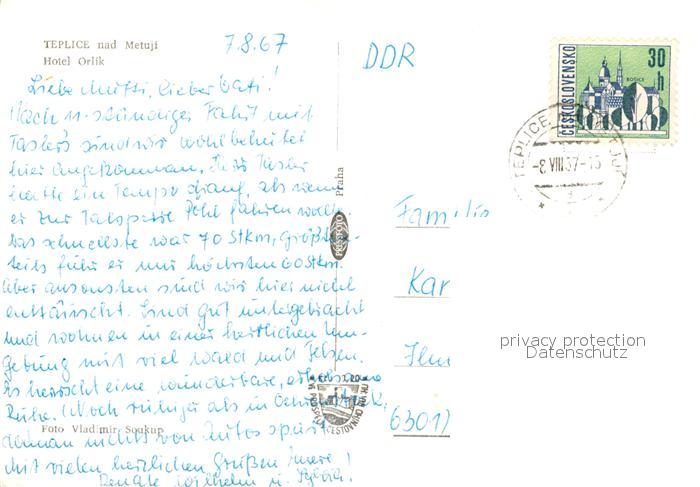 TEPLICE nad Metují
Hotel Orlík
7.8.67
Liebe Mutti, lieber Vati!
Nach 11-stündiger Fahrt mit
sind wir wohlbehütet
hier angekommen. Herr
hatte ein Tempo drauf, als wenn
er zur Talsperre Pöhl fahren wollte.
Das schnellste war 70 Stkm, größten-
teils fuhr er nur höchstens 60 Stkm.
Aber ansonsten sind wir hier nicht
enttäuscht. Sind gut untergebracht
und wohnen in einer herrlichen Um-
gebung mit viel Wald und Felsen.
Es herrscht eine wunderbare, erholsame
Ruhe. (Noch ruhiger als in
da man nichts von Autos spürt.
Mit vielen herzlichen Grüßen Eure!
Renate Wilhelm u. Sylvia!
Foto Vladimír Soukup
Praha
PRESSFOTO
DDR
ČESKOSLOVENSKO
30
h
KOŠICE
TEPLICE
-8.VIII.67-15
Familie
Kar
Ilm
6301
privacy protection
Datenschutz